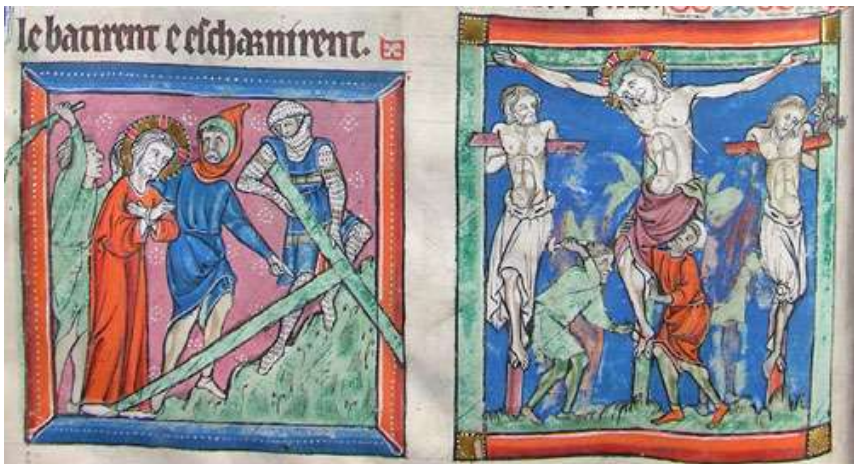 le batirent e escharnirent.